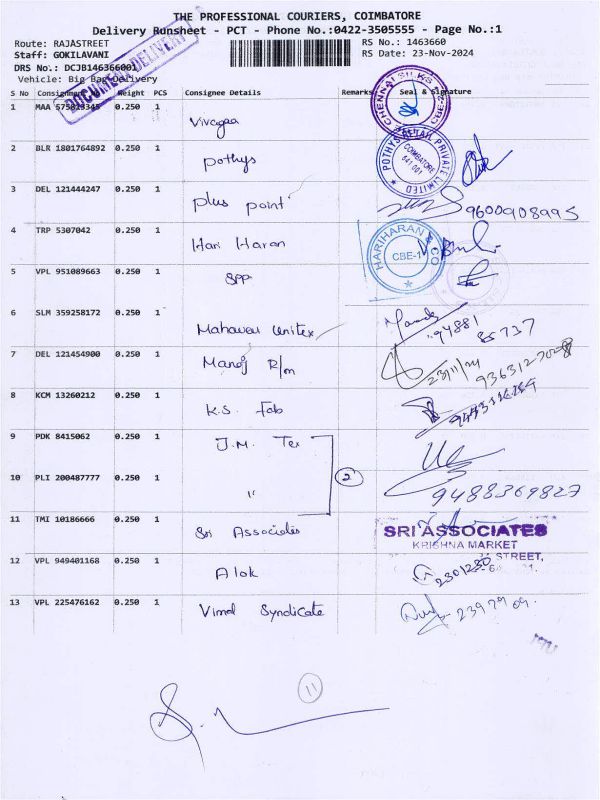 THE PROFESSIONAL COURIERS, COIMBATORE
Delivery Runsheet - PCT - Phone No.:0422-3505555 - Page No.:1
Route: RAJASTREET
RS No.: 1463660
Staff: GOKILAVANI
RS Date: 23-Nov-2024
DRS No.: DCJB146366001
Vehicle: Big Bag Delivery
DOCUMENT DELIVERY
S No Consignment No Weight PCS Consignee Details Remarks Seal & Signature
1 MAA 0.250 1
CHENNAI SILKS CBE
2 BLR 1801764892 0.250 1 pothys
POTHYS RETAIL PRIVATE LIMITED COIMBATORE 641 001
3 DEL 121444247 0.250 1 plus point 9600908995
4 TRP 5307042 0.250 1 Hari Haran
HARIHARAN & CO CBE-1
5 VPL 951089663 0.250 1 SPP
6 SLM 359258172 0.250 1 Mahaveer Unitex 94881 85737
7 DEL 121454900 0.250 1 Manoj R/m 23/11/24
8 KCM 13260212 0.250 1 K.S. Fab
9 PDK 8415062 0.250 1 J.M. Tex
2
10 PLI 200487777 0.250 1 " 9488369827
11 TMI 10186666 0.250 1 Sri Associates
SRI ASSOCIATES
KRISHNA MARKET
STREET,
12 VPL 949401168 0.250 1 Alok 2301230
13 VPL 225476162 0.250 1 Vimal Syndicate
11